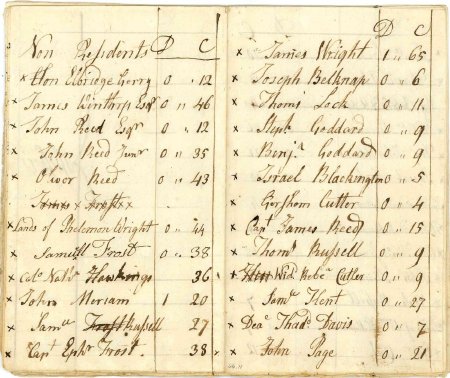 Non Residents D C
x Hon Elbridge Gerry 0 " 12
James Winthrop Esqr 0 " 46
x John Reed Esqr 0 " 12
x John Reed Junr 0 " 35
x Oliver Reed 0 " 43
James Frost x
x Lands of Philemon Wright 0 " 44
x Samll Frost 0 " 38
x Colo Nathl Hawkings 36
x John Meriam 1 20
x Samll Frost Russell 27
x Capt Ephm Frost. 38
D C
x James Wright 1 " 65
x Joseph Belknap 0 " 6
x Thoms Lock 0 " 11
x Stepn Goddard 0 " 9
x Benja Goddard 0 " 9
x Israel Blackington 0 " 5
x Gershom Cutter 0 " 4
x Capt James Reed 0 " 15
x Thoms Russell 0 " 9
x Wid. Rebc Cutler 0 " 9
x Saml Kent 0 " 27
x Deac Thadd Davis 0 " 7
x John Page 0 " 21